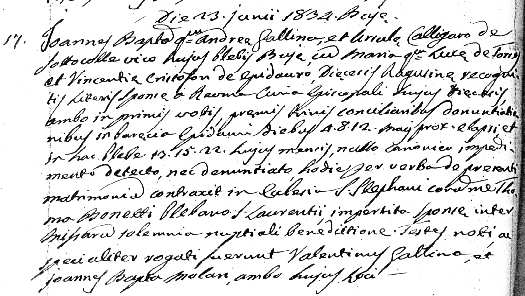 Die 23. junii 1834. Buje.
17. Joannes Bapta qm Andrea Gallina, et Ursula Calligaro de
Sottocolle vico hujus Plebis Buje cu Maria qm Luca de
et Vincentia Cristofon de Epidauro, Diecesis Ragusine recogni
tis literis sponse a Curia Episcopali hujus Diecesis
ambo in primis votis, premis trinis conciliaribus denuntiatio
nibus in Parecia Epidauri diebus 4. 8. 12. Maj prox. elapsi, et
in hac Plebe 13. 15. 22. hujus mensis, nullo canonico impedi
mento detecto, nec denuntiato, hodie per verba de presenti
matrimoniu contraxit in Eclesia S. Stephani cora me Tho
ma Bonelli Plebano S. Laurentii, impertita sponse inter
Missaru solemnia nuptiali beneditione. Testes noti ac
specialiter rogati fuerunt Valentinus Gallina, et
Joannes Bapta Molaro, ambo hujus loci